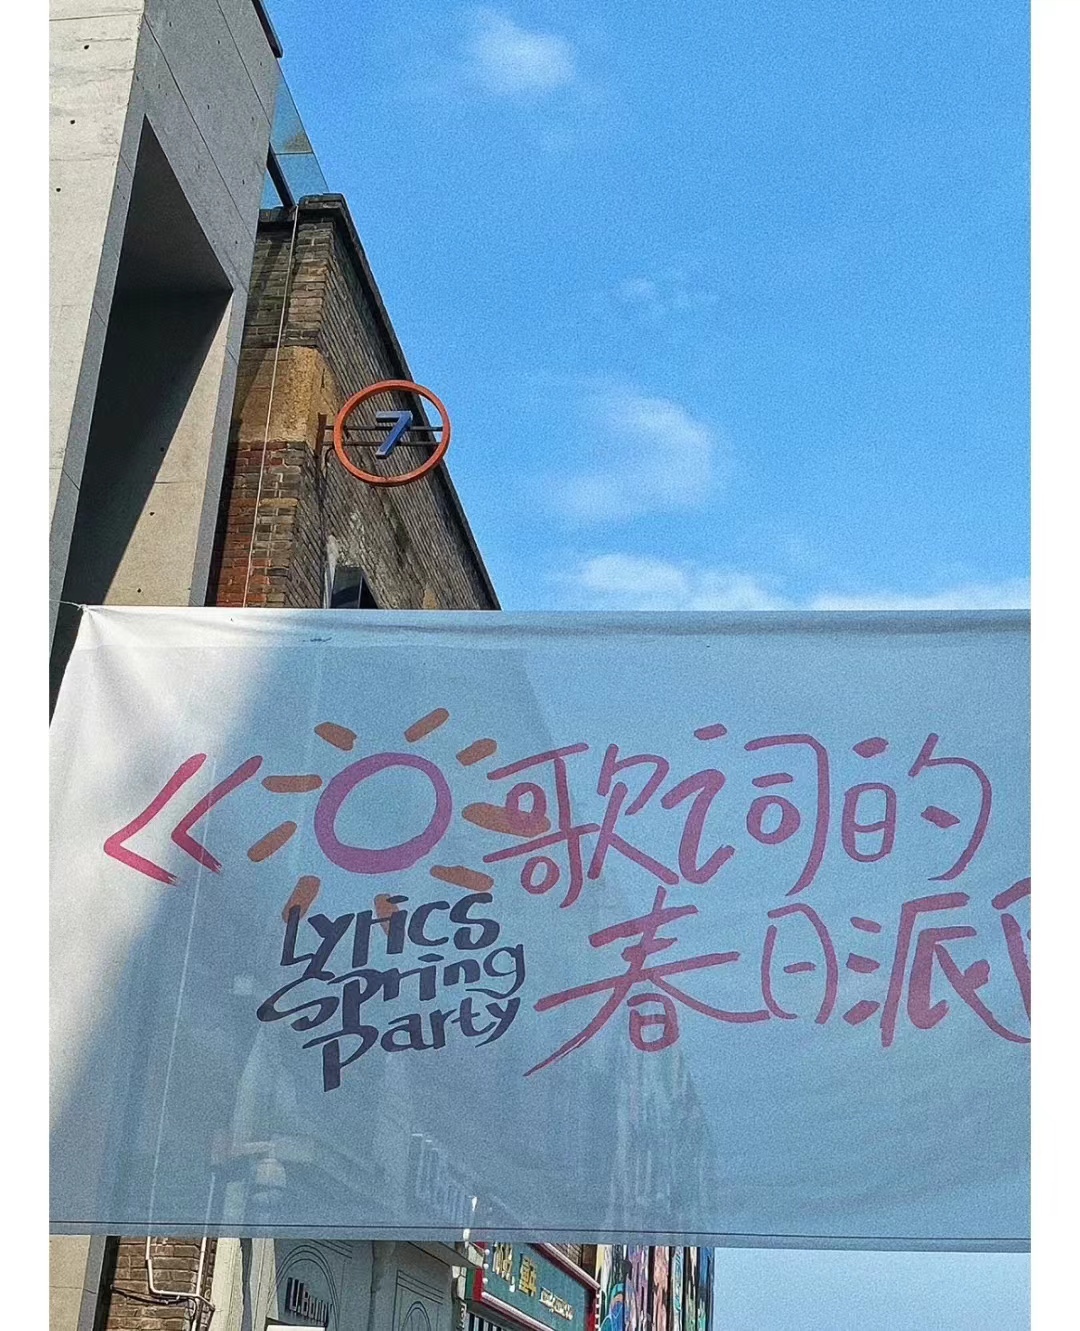 7
《歌词的
春日派
Lyrics
Spring
Party